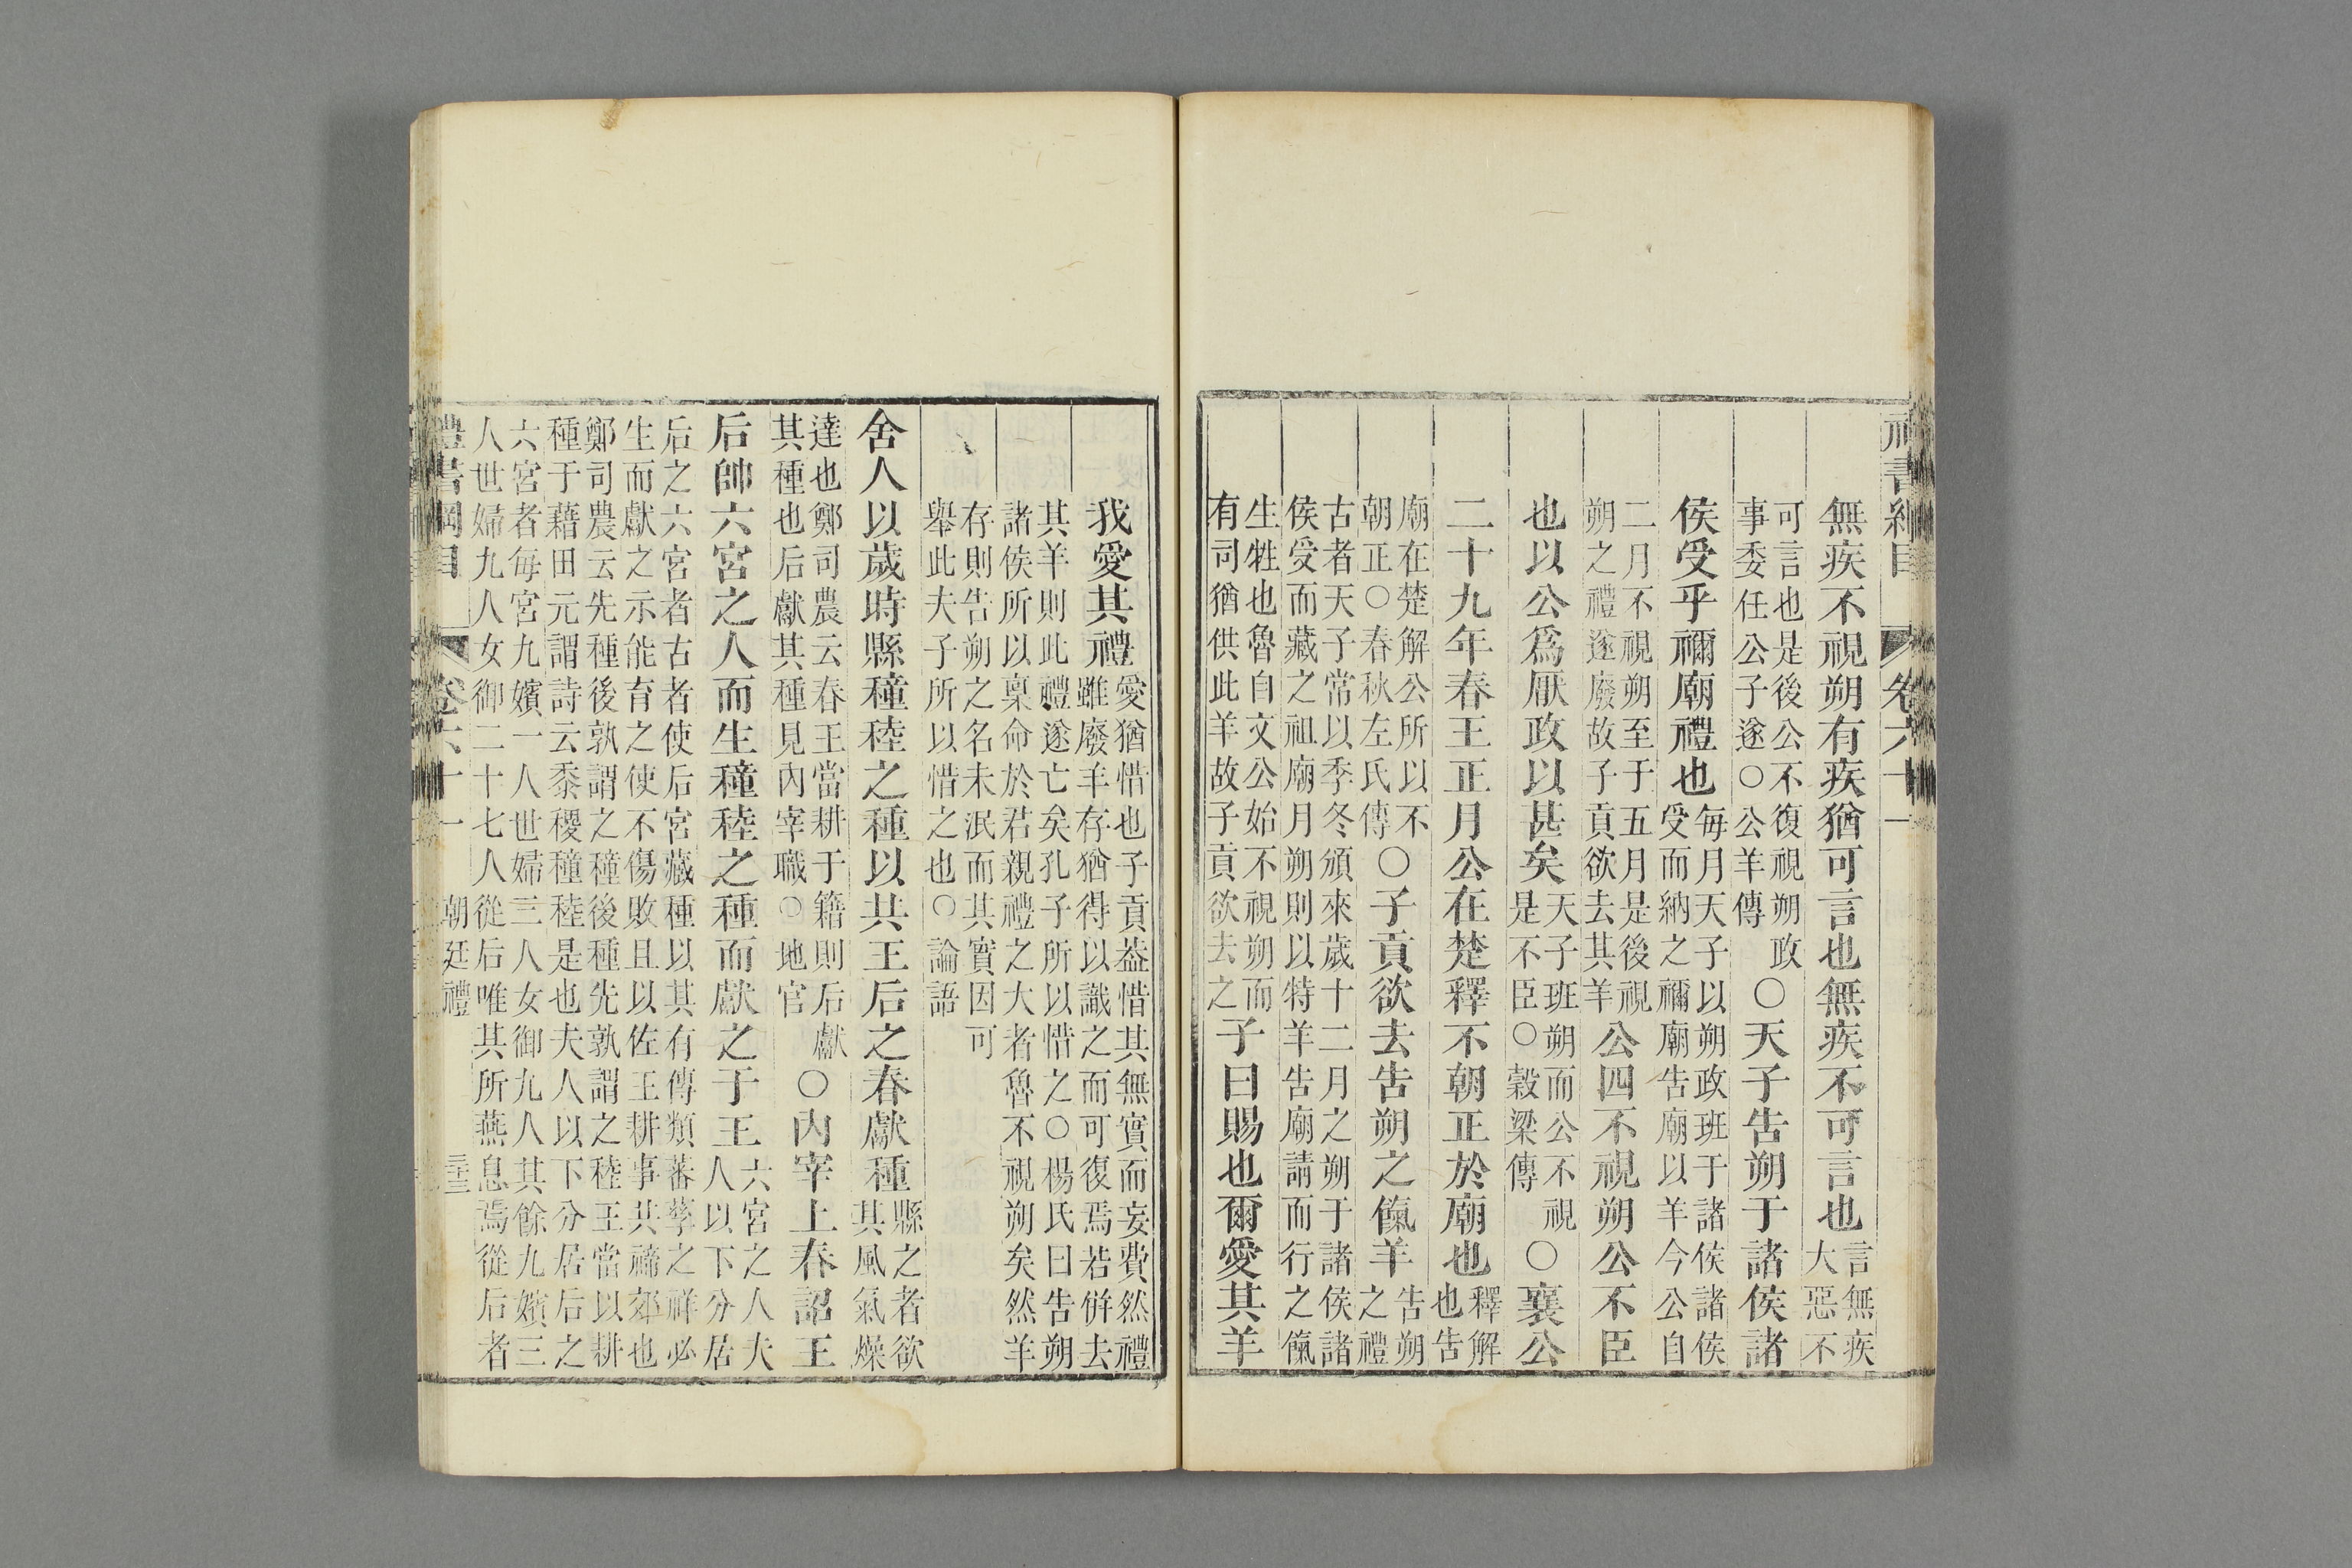 無疾不視朔有疾猶可言也無疾不可言也言無疾大惡不
可言也是後公不復視朔政事委任公子遂○公羊傳○天子告朔于諸侯諸
侯受乎禰廟禮也每月天子以朔政班于諸侯諸侯受而納之禰廟告廟以羊今公自
二月不視朔至于五月是後視朔之禮遂廢故子貢欲去其羊公四不視朔公不臣
也以公爲厭政以甚矣天子班朔而公不視是不臣○穀梁傳○襄公
二十九年春王正月公在楚釋不朝正於廟也釋解也告
廟在楚解公所以不朝正○春秋左氏傳○子貢欲去告朔之餼羊告朔之禮
古者天子常以季冬頒來歲十二月之朔于諸侯諸侯受而藏之祖廟月朔則以特羊告廟請而行之餼
生牲也魯自文公始不視朔而有司猶供此羊故子貢欲去之子曰賜也爾愛其羊
我愛其禮愛猶惜也子貢蓋惜其無實而妄費然禮雖廢羊存猶得以識之而可復焉若倂去
其羊則此禮遂亡矣孔子所以惜之○楊氏曰告朔諸侯所以稟命於君親禮之大者魯不視朔矣然羊
存則告朔之名未泯而其實因可舉此夫子所以惜之也○論語
舍人以歲時縣穜稑之種以共王后之春獻種縣之者欲其風氣燥
達也鄭司農云春王當耕于籍則后獻其種也后獻其種見內宰職○地官○內宰上春詔王
后帥六宮之人而生穜稑之種而獻之于王六宮之人夫人以下分居
后之六宮者古者使后宮藏種以其有傳類蕃孳之祥必生而獻之示能育之使不傷敗且以佐王耕事共禘郊也
鄭司農云先種後孰謂之穜後種先孰謂之稑王當以耕種于藉田元謂詩云黍稷穜稑是也夫人以下分居后之
六宮者每宮九嬪一人世婦三人女御九人其餘九嬪三人世婦九人女御二十七人從后唯其所燕息焉從后者
禮書綱目 卷六十一 朝廷禮 三十三